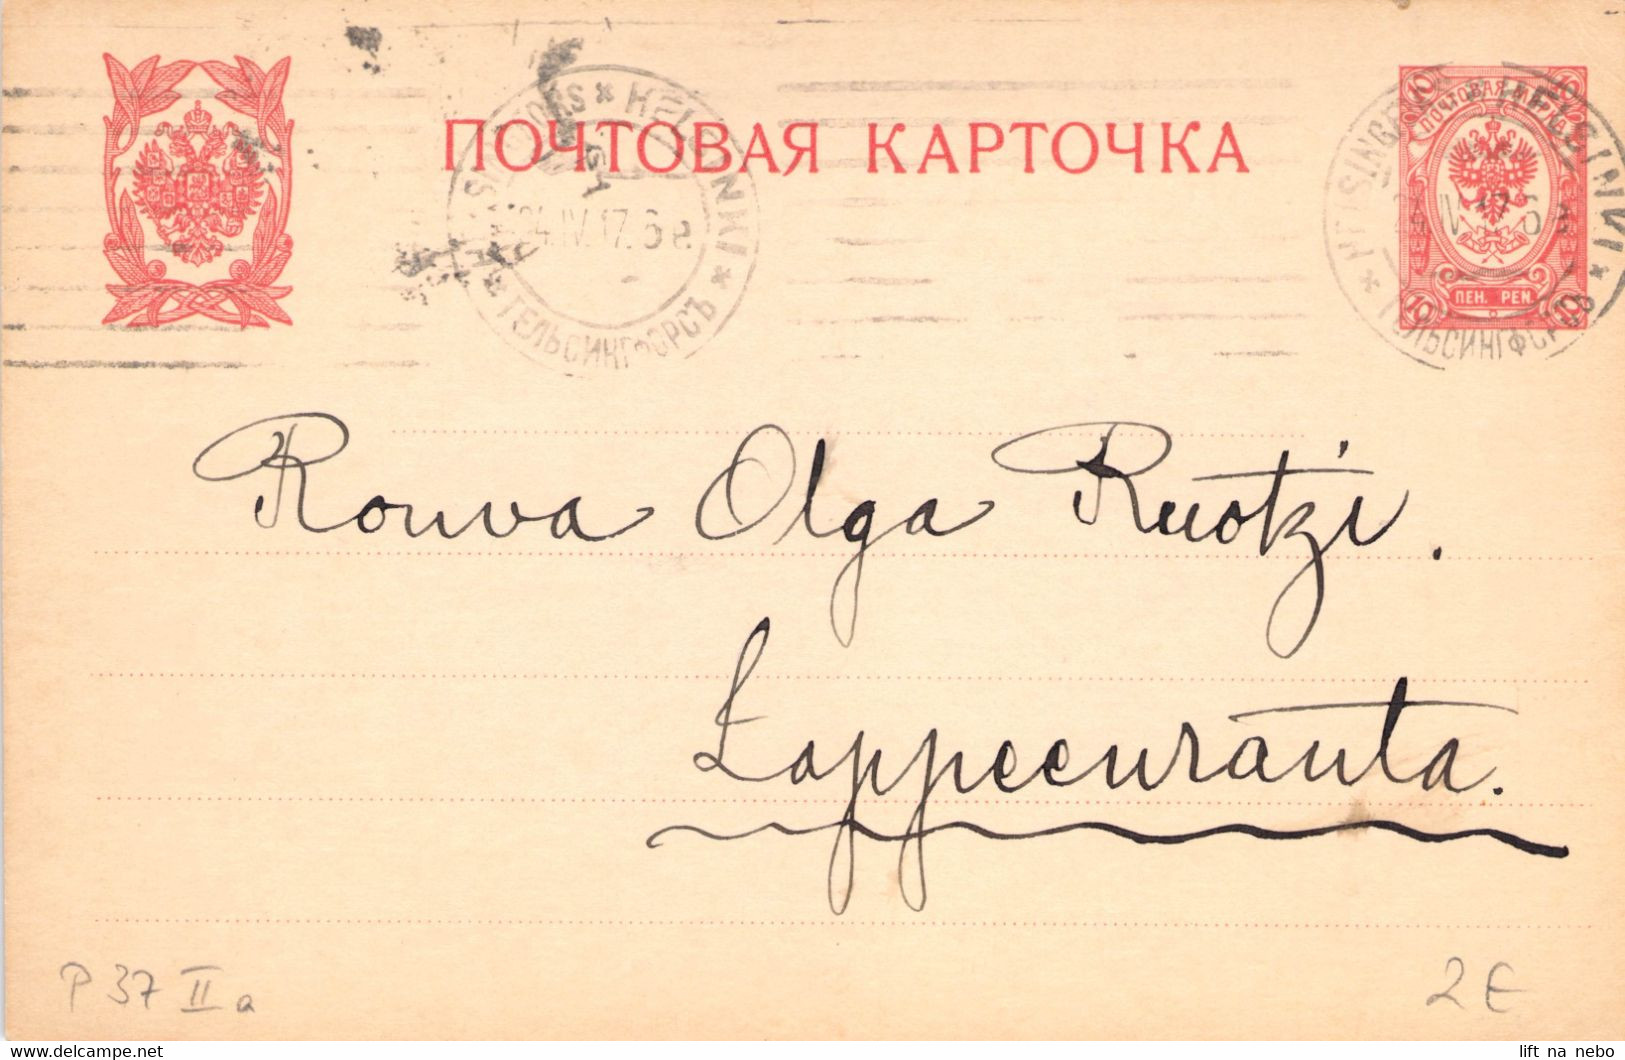 ПОЧТОВАЯ КАРТОЧКА
HELSINKI
24.IV.17. 6 e.
ГЕЛЬСИНГФОРСЪ
10 10
ПОЧТОВАЯ МАРКА
HELSINGFORS * HELSINKI
24.IV.17. 6 e
ПЕН. PEN.
10 10
ГЕЛЬСИНГФОРСЪ
Rouva Olga Ruotzi.
Lappeenranta.
P 37 II a
2 €
delcampe.net
lift na nebo